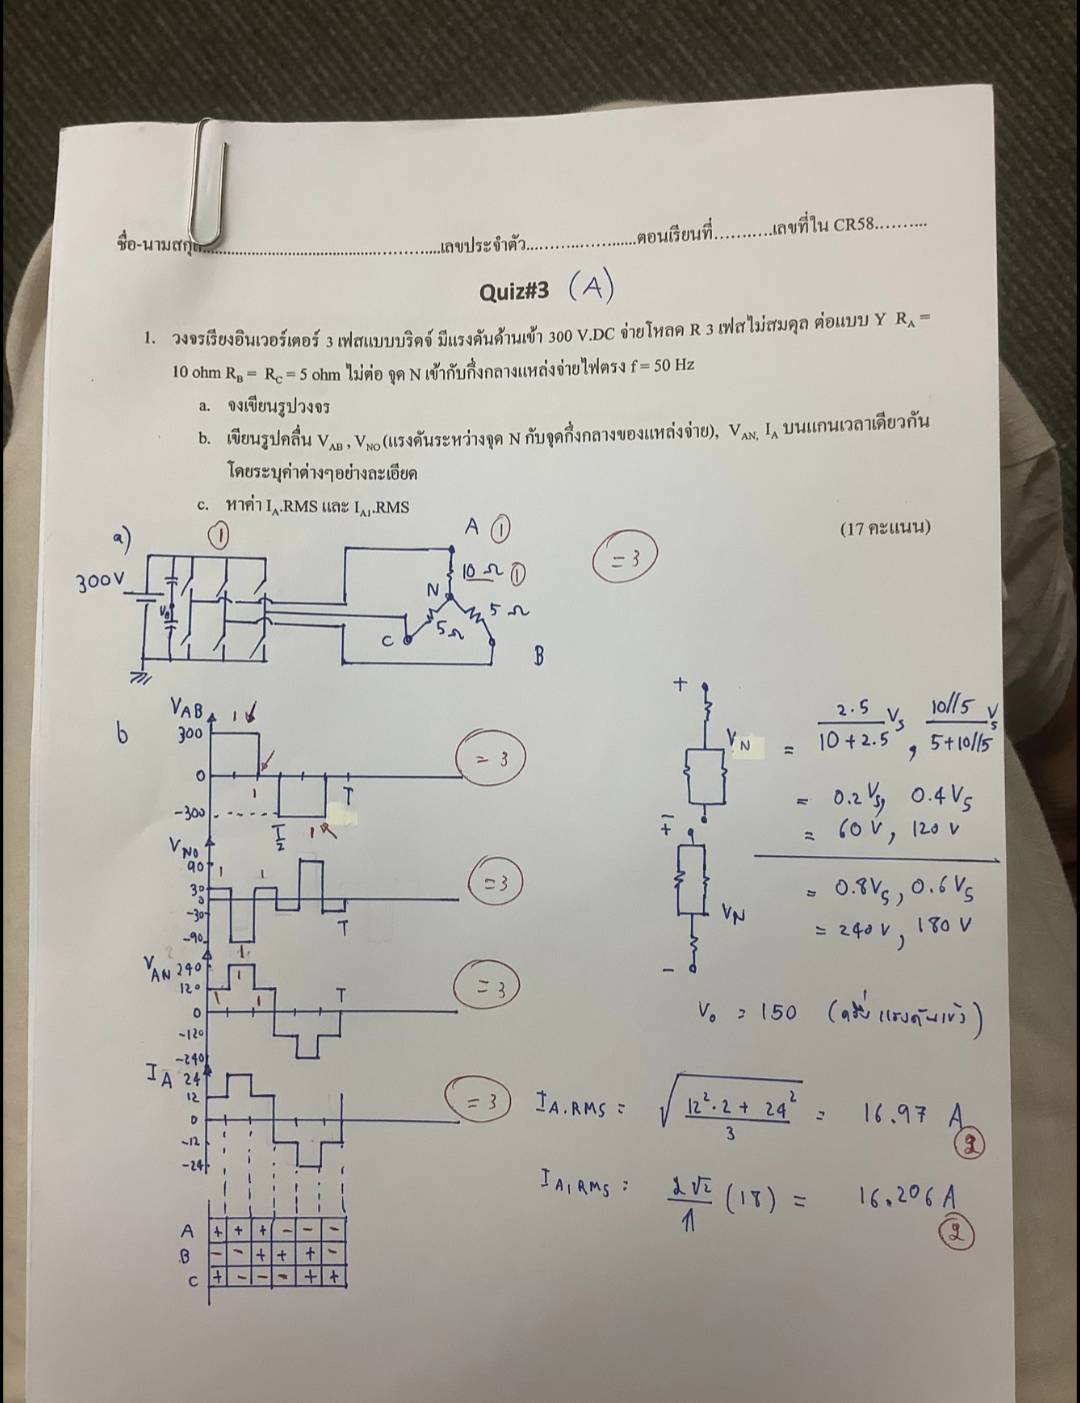 ชื่อ-นามสกุล....................เลขประจำตัว....................ตอนเรียนที่...........เลขที่ใน CR58..........
Quiz#3 (A)
1. วงจรเรียงอินเวอร์เตอร์ 3 เฟสแบบบริดจ์ มีแรงดันด้านเข้า 300 V.DC จ่ายโหลด R 3 เฟสไม่สมดุล ต่อแบบ Y R_A =
10 ohm R_B = R_C = 5 ohm ไม่ต่อ จุด N เข้ากับกึ่งกลางแหล่งจ่ายไฟตรง f = 50 Hz
a. จงเขียนรูปวงจร
b. เขียนรูปคลื่น V_AB , V_NO (แรงดันระหว่างจุด N กับจุดกึ่งกลางของแหล่งจ่าย), V_AN, I_A บนแกนเวลาเดียวกัน
โดยระบุค่าต่างๆอย่างละเอียด
c. หาค่า I_A.RMS และ I_A1.RMS
(17 คะแนน)
a) 1
A 1
= 3
300V
10 Ω 1
N
5 Ω
C 5 Ω
B
b
V_AB
300
0
-300
T/2
T
= 3
V_NO
90
30
-30
-90
T
= 3
V_AN 240
120
0
-120
-240
T
= 3
I_A 24
12
0
-12
-24
= 3
A + + + - - -
B - - + + + -
C + - - - + +
+
V_N = 2.5/(10+2.5) V_S , 10//5/(5+10//5) V_S
= 0.2 V_S, 0.4 V_S
= 60 V, 120 V
= 0.8 V_S, 0.6 V_S
V_N
= 240 V, 180 V
-
V_o = 150 (ครึ่งแรงดันเข้า)
I_A.RMS = √((12²·2 + 24²)/3) = 16.97 A
2
I_A1RMS = 2√2/π (18) = 16.206 A
2